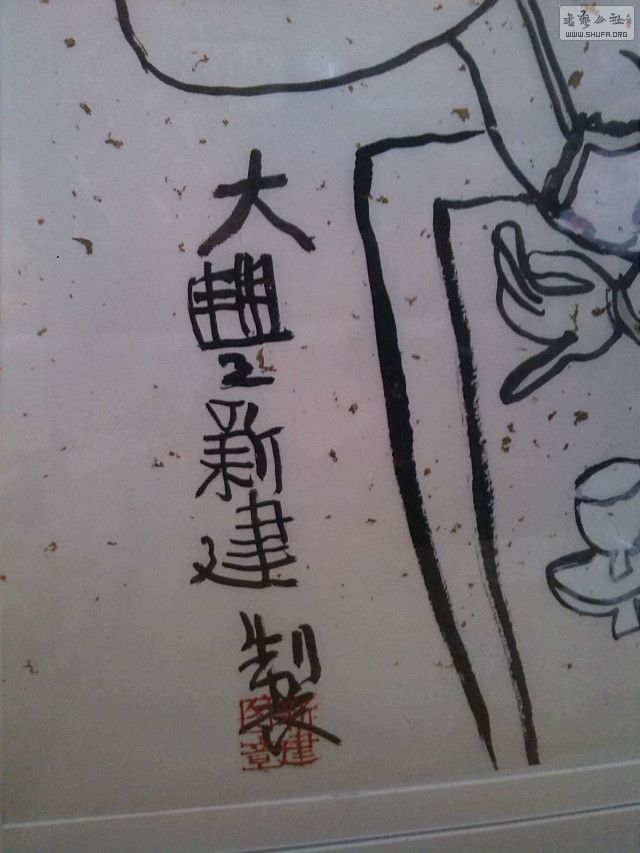 書藝公社
WWW.SHUFA.ORG
大豐新建製
新建
图章